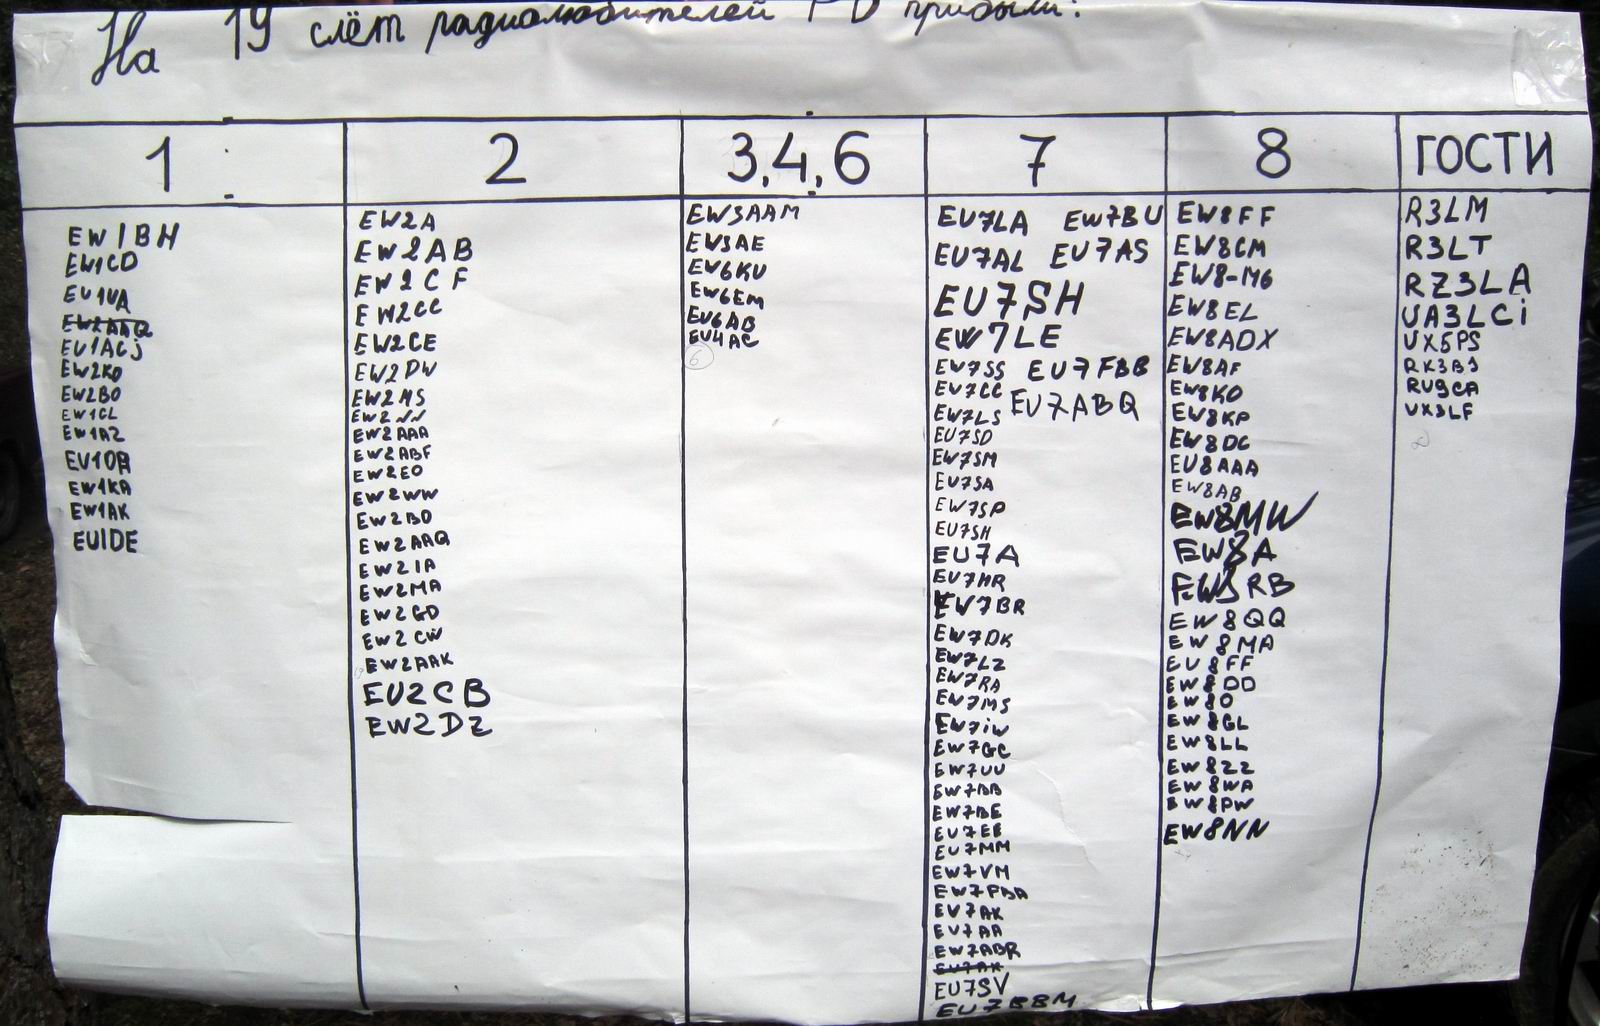 На 19 слёт радиолюбителей прибыли:
1
EW1BH
EW1CD
EU1UA
EW2AAQ
EU1ACj
EW2KO
EW2BO
EW1CL
EW1AZ
EU1DA
EW1KA
EW1AK
EU1DE
2
EW2A
EW2AB
EW2CF
EW2CC
EW2CE
EW2DW
EW2MS
EW2NN
EW2AAA
EW2ABF
EW2EO
EW2WW
EW2BO
EW2AAQ
EW2IA
EW2MA
EW2GD
EW2CW
EW2AAK
EU2CB
EW2DZ
3,4,6
EW3AAM
EW3AE
EW6KU
EW6EM
EU6AB
EU4AC
6
7
EU7LA EW7BU
EU7AL EU7AS
EU7SH
EW7LE
EW7SS EU7FBB
EU7CC
EW7LS EU7ABQ
EU7SD
EW7SM
EU7SA
EW7SP
EU7SH
EU7A
EU7HR
EW7BR
EW7DK
EW7LZ
EW7RA
EW7MS
EW7iW
EW7GC
EW7UU
EW7BB
EW7BE
EU7EE
EU7MM
EW7VM
EW7PBA
EU7AK
EU7AA
EW7ABR
EU7AK
EU7SV
EU7BBM
8
EW8FF
EW8CM
EW8-M6
EW8EL
EW8ADX
EW8AF
EW8KO
EW8KP
EW8DC
EU8AAA
EW8AB
EW8MW
EW8A
EW8RB
EW8QQ
EW8MA
EU8FF
EW8DD
EW8O
EW8GL
EW8LL
EW8ZZ
EW8WA
EW8PW
EW8NN
ГОСТИ
R3LM
R3LT
RZ3LA
UA3LCi
UX5PS
RU9CA